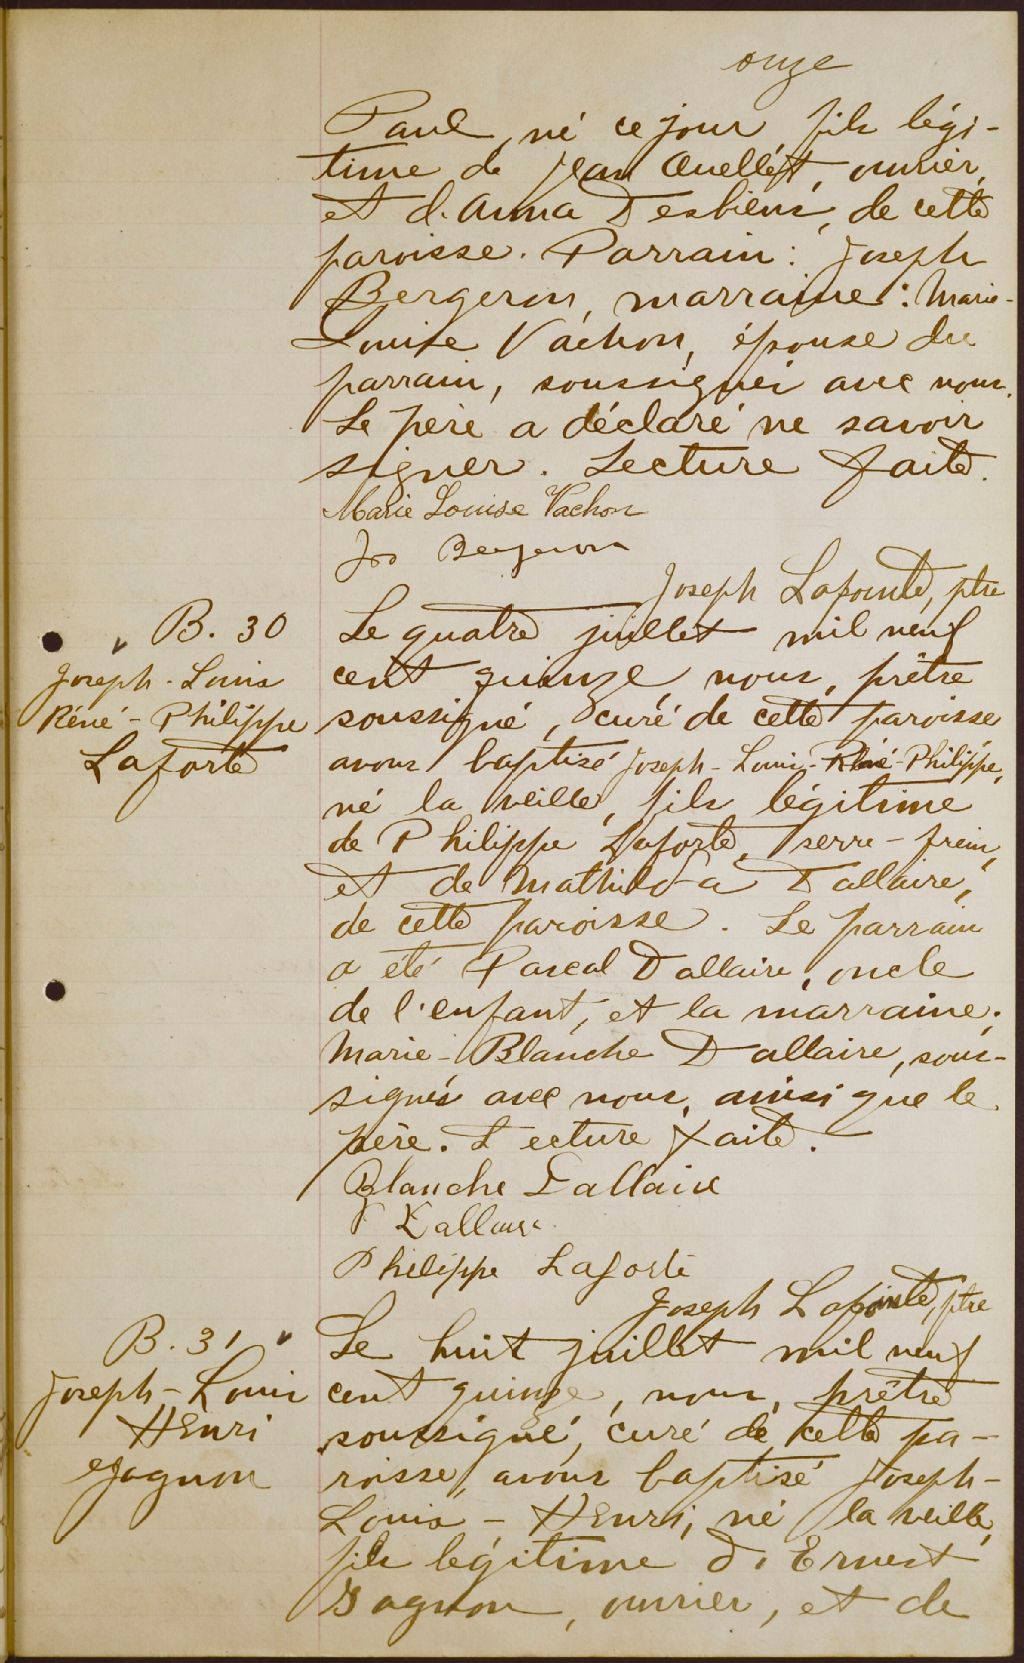 onze
Paul, né ce jour, fils légi-
time de Jean Ouellet, ouvrier,
et d'Anna Desbiens, de cette
paroisse. Parrain: Joseph
Bergeron, marraine: Marie-
Louise Vachon, épouse du
parrain, soussignés avec nous.
Le père a déclaré ne savoir
signer. Lecture faite.
Marie Louise Vachon
Jos Bergeron
Joseph Lapointe, ptre
B. 30
Joseph-Louis
Réné-Philippe
Laforte
Le quatre juillet mil neuf
cent quinze, nous, prêtre
soussigné, curé de cette paroisse
avons baptisé Joseph-Louis-Réné-Philippe,
né la veille, fils légitime
de Philippe Laforte, serre-frein,
et de Mathilda Dallaire,
de cette paroisse. Le parrain
a été Pascal Dallaire, oncle
de l'enfant, et la marraine:
Marie-Blanche Dallaire, sous-
signés avec nous, ainsi que le
père. Lecture faite.
Blanche Dallaire
P Dallaire
Philippe Laforte
Joseph Lapointe, ptre
B. 31
Joseph-Louis
Henri
Gagnon
Le huit juillet mil neuf
cent quinze, nous, prêtre
soussigné, curé de cette pa-
roisse, avons baptisé Joseph-
Louis-Henri, né la veille,
fils légitime d'Ernest
Gagnon, ouvrier, et de